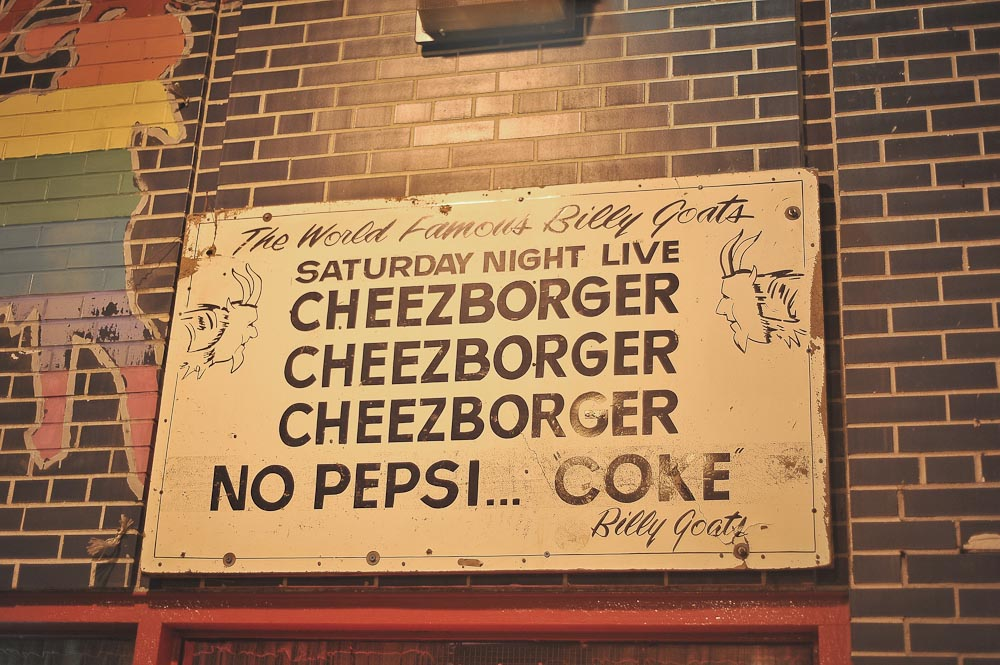 The World Famous Billy Goats
SATURDAY NIGHT LIVE
CHEEZBORGER
CHEEZBORGER
CHEEZBORGER
NO PEPSI... "COKE"
Billy Goats